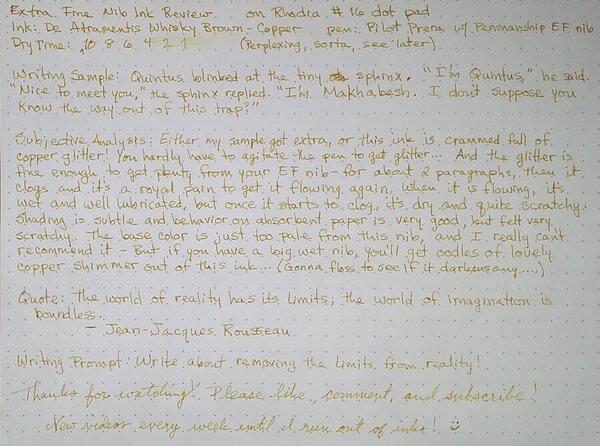 Extra Fine Nib Ink Review on Rhodia #16 dot pad
Ink: De Atramentis Whisky Brown-Copper pen: Pilot Prera w/ Penmanship EF nib
Dry Time: 10 8 6 4 2 1 (Perplexing, sorta, see later)
Writing Sample: Quintus blinked at the tiny sphinx. "I'm Quintus," he said.
"Nice to meet you," the sphinx replied. "I'm Makhabesh. I don't suppose you
know the way out of this trap?"
Subjective Analysis: Either my sample got extra, or this ink is crammed full of
copper glitter! You hardly have to agitate the pen to get glitter... And the glitter is
fine enough to get plenty from your EF nib - for about 2 paragraphs, then it
clogs and it's a royal pain to get it flowing again. When it is flowing, it's
wet and well lubricated, but once it starts to clog, it's dry and quite scratchy.
Shading is subtle and behavior on absorbent paper is very good, but felt very
scratchy. The base color is just too pale from this nib, and I really can't
recommend it - But if you have a big wet nib, you'll get oodles of lovely
copper shimmer out of this ink... (Gonna floss to see if it darkens any.....)
Quote: The world of reality has its limits; the world of imagination is
boundless.
- Jean-Jacques Rousseau
Writing Prompt: Write about removing the limits from reality!
Thanks for watching! Please like, comment, and subscribe!
New videos every week until I run out of inks! :)